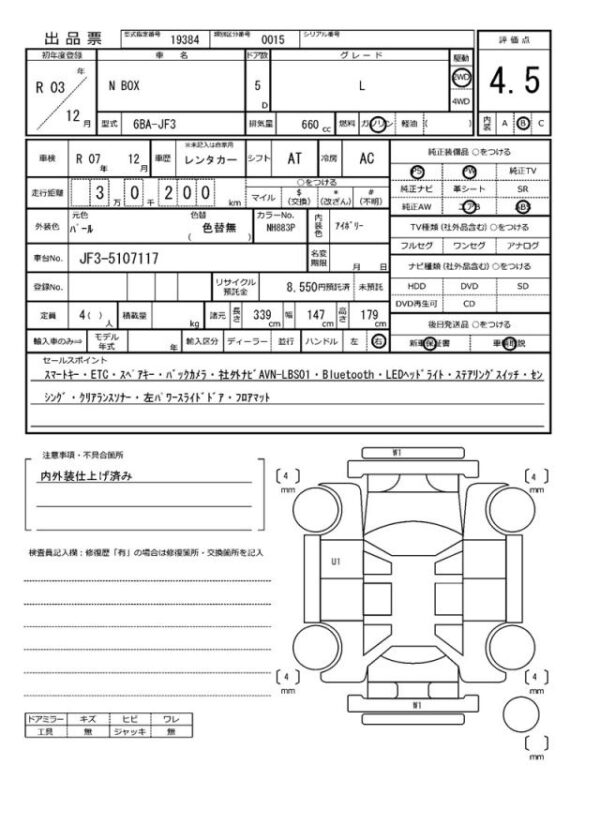 出品票 型式指定番号 19384 類別区分番号 0015 シリアル番号
評価点
4.5
初年度登録 車名 ドア数 グレード 駆動
R 03 年 12 月 N BOX 5 D L 2WD 4WD
型式 6BA-JF3 排気量 660 cc 燃料 ガソリン 軽油 ( )
内装 A B C
車検 R 07 年 12 月 車歴 ※未記入は自家用 レンタカー シフト AT 冷房 AC
走行距離 3 万 0 千 2 0 0 km
○をつける
マイル $ (交換) * (改ざん) # (不明)
外装色 元色 パール 色替 色替無 ( ) カラーNo. NH883P 内装色 アイボリー
車台No. JF3-5107117 名変期限 月 日
登録No. リサイクル預託金 8,550円預託済 未預託
定員 4( ) 人 積載量 kg 諸元 長さ 339 cm 幅 147 cm 高さ 179 cm
輸入車のみ⇒ モデル年式 年 輸入区分 ディーラー 並行 ハンドル 左 右
純正装備品 ○をつける
PS PW 純正TV
純正ナビ 革シート SR
純正AW エアB ABS
TV種類(社外品含む)○をつける
フルセグ ワンセグ アナログ
ナビ種類(社外品含む)○をつける
HDD DVD SD
DVD再生可 CD
後日発送品 ○をつける
新車保証書 車輌取説
セールスポイント
スマートキー・ETC・スペアキー・バックカメラ・社外ナビAVN-LBS01・Bluetooth・LEDヘッドライト・ステアリングスイッチ・セン
シング・クリアランスソナー・左パワースライドドア・フロアマット
注意事項・不具合箇所
内外装仕上げ済み
検査員記入欄:修復歴「有」の場合は修復箇所・交換箇所を記入
W1
( 4 ) mm
( 4 ) mm
U1
( 4 ) mm
( 4 ) mm
W1
( ) mm
ドアミラー キズ ヒビ ワレ
工具 無 ジャッキ 無